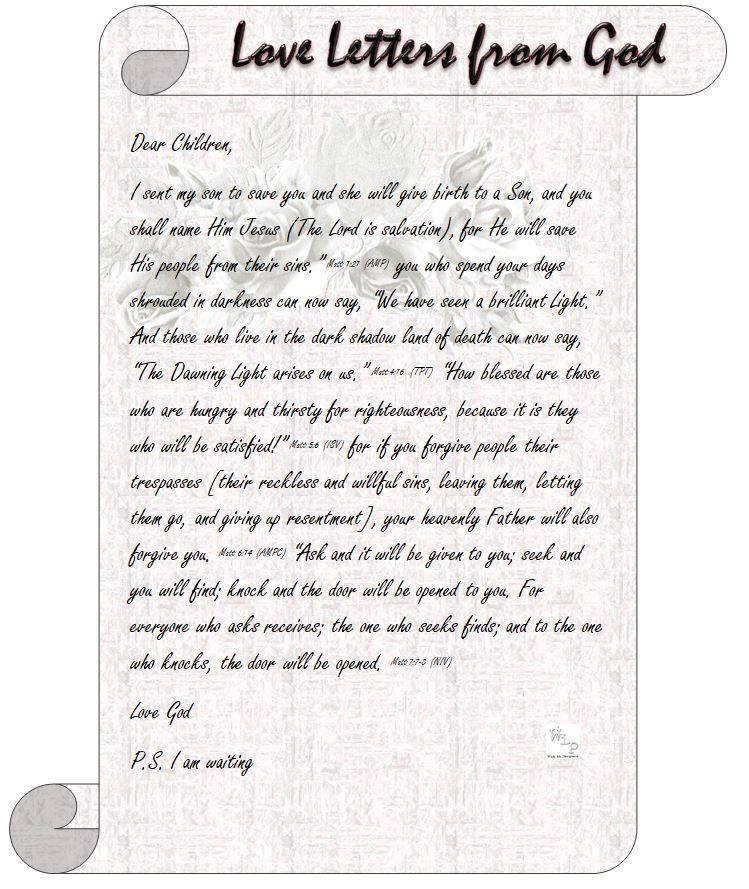 Love Letters from God
Dear Children,
I sent my son to save you and she will give birth to a Son, and you
shall name Him Jesus (The Lord is salvation), for He will save
His people from their sins.” Matt 1:21 (AMP) you who spend your days
shrouded in darkness can now say, “We have seen a brilliant Light.”
And those who live in the dark shadow land of death can now say,
“The Dawning Light arises on us.” Matt 4:16 (TPT) “How blessed are those
who are hungry and thirsty for righteousness, because it is they
who will be satisfied!” Matt 5:6 (ISV) for if you forgive people their
trespasses [their reckless and willful sins, leaving them, letting
them go, and giving up resentment], your heavenly Father will also
forgive you. Matt 6:14 (AMPC) “Ask and it will be given to you; seek and
you will find; knock and the door will be opened to you. For
everyone who asks receives; the one who seeks finds; and to the one
who knocks, the door will be opened. Matt 7:7-8 (NIV)
Love God
P.S. I am waiting